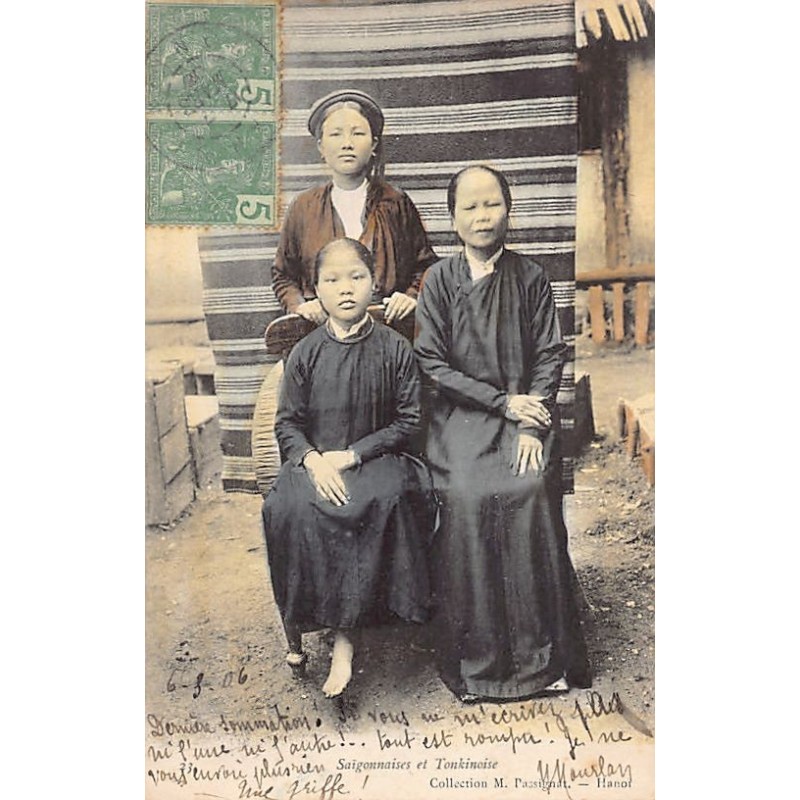 5
5
6-3-06
Dernière sommation! Si vous ne m'écrivez pas
ni l'une ni l'autre!.. tout est rompu! Je ne
vous envoie plus rien
23. Saïgonnaises et Tonkinoise
Une griffe!
Collection M. Passignat. — Hanoï